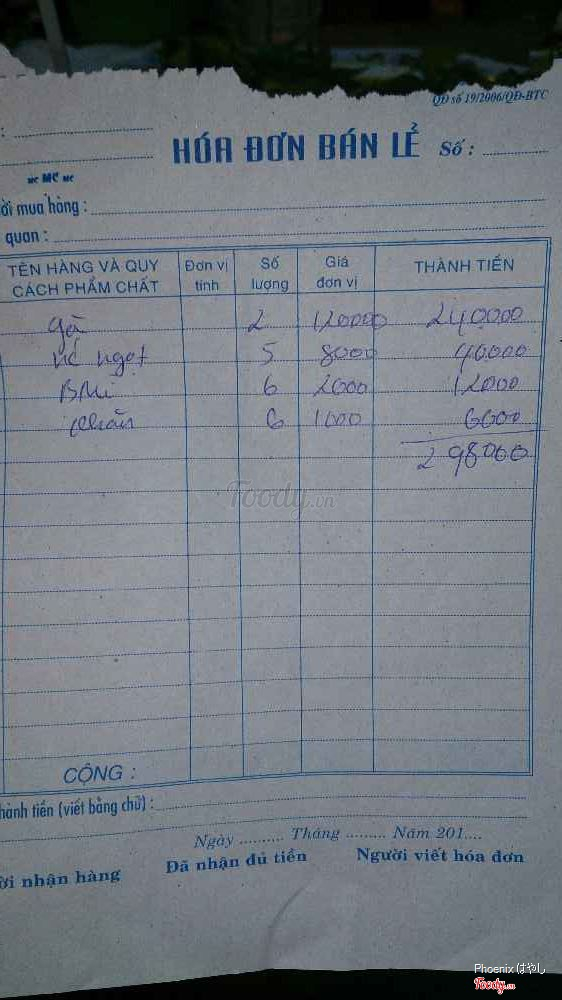 QĐ số 19/2006/QĐ-BTC
:
HÓA ĐƠN BÁN LẺ Số :
MC MC MC
ời mua hàng :
quan :
TÊN HÀNG VÀ QUY CÁCH PHẨM CHẤT Đơn vị tính Số lượng Giá đơn vị THÀNH TIỀN
gà 2 120000 240000
nc ngọt 5 8000 40000
BMì 6 2000 12000
khăn 6 1000 6000
298000
Foody.vn
CỘNG :
hành tiền (viết bằng chữ) :
Ngày .......... Tháng ......... Năm 201....
ời nhận hàng Đã nhận đủ tiền Người viết hóa đơn
Phoenix はやし
Foody.vn